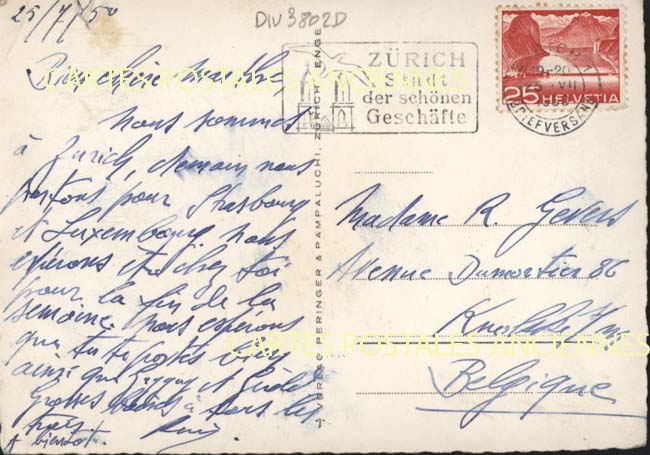 25/7/50
DIV3802D
Bien chère
Nous sommes
à Zurich, demain nous
partons pour Strasbourg
et Luxembourg. Nous
espérons être chez toi
pour la fin de la
semaine. Nous espérons
que tu te portes bien
ainsi que et
Grosses à vous
A bientôt.
ZÜRICH
Stadt
der schönen
Geschäfte
25 HELVETIA
BRIEFVERSAND
VERLAG PERINGER & PAMPALUCHI, ZÜRICH-ENGE
Madame R. Gevers
Avenue Dumortier 86
Knocke
Belgique
CARTES POSTALES ANCIENNES
CARTES POSTALES ANCIENNES